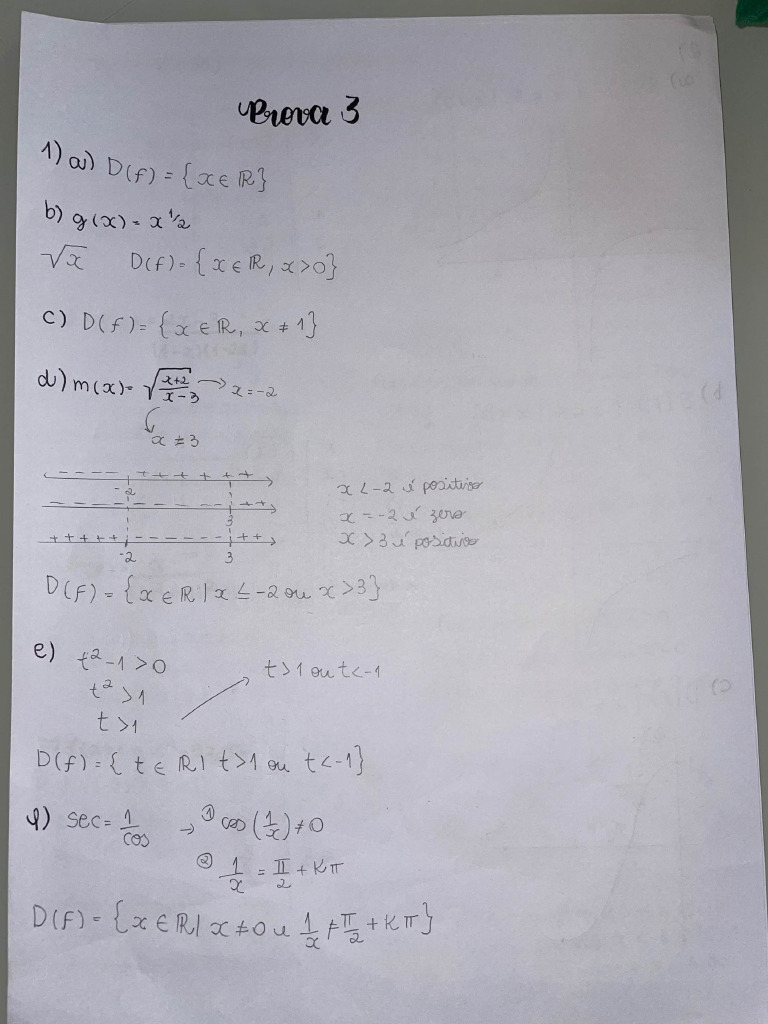 Prova 3
1) a) D(f) = {x ∈ ℝ}
b) g(x) = x^1/2
√x D(f) = {x ∈ ℝ, x > 0}
c) D(f) = {x ∈ ℝ, x ≠ 1}
d) m(x) = √((x+2)/(x-3)) → x = -2
x ≠ 3
- - - - + + + + + +
-2
- - - - - - - - - + +
3
+ + + + + - - - - - + +
-2 3
x < -2 é positivo
x = -2 é zero
x > 3 é positivo
D(f) = {x ∈ ℝ | x ≤ -2 ou x > 3}
e) t² - 1 > 0
t² > 1
t > 1
t > 1 ou t < -1
D(f) = {t ∈ ℝ | t > 1 ou t < -1}
f) sec = 1/cos → ① cos(1/x) ≠ 0
② 1/x = π/2 + Kπ
D(f) = {x ∈ ℝ | x ≠ 0 e 1/x ≠ π/2 + Kπ}